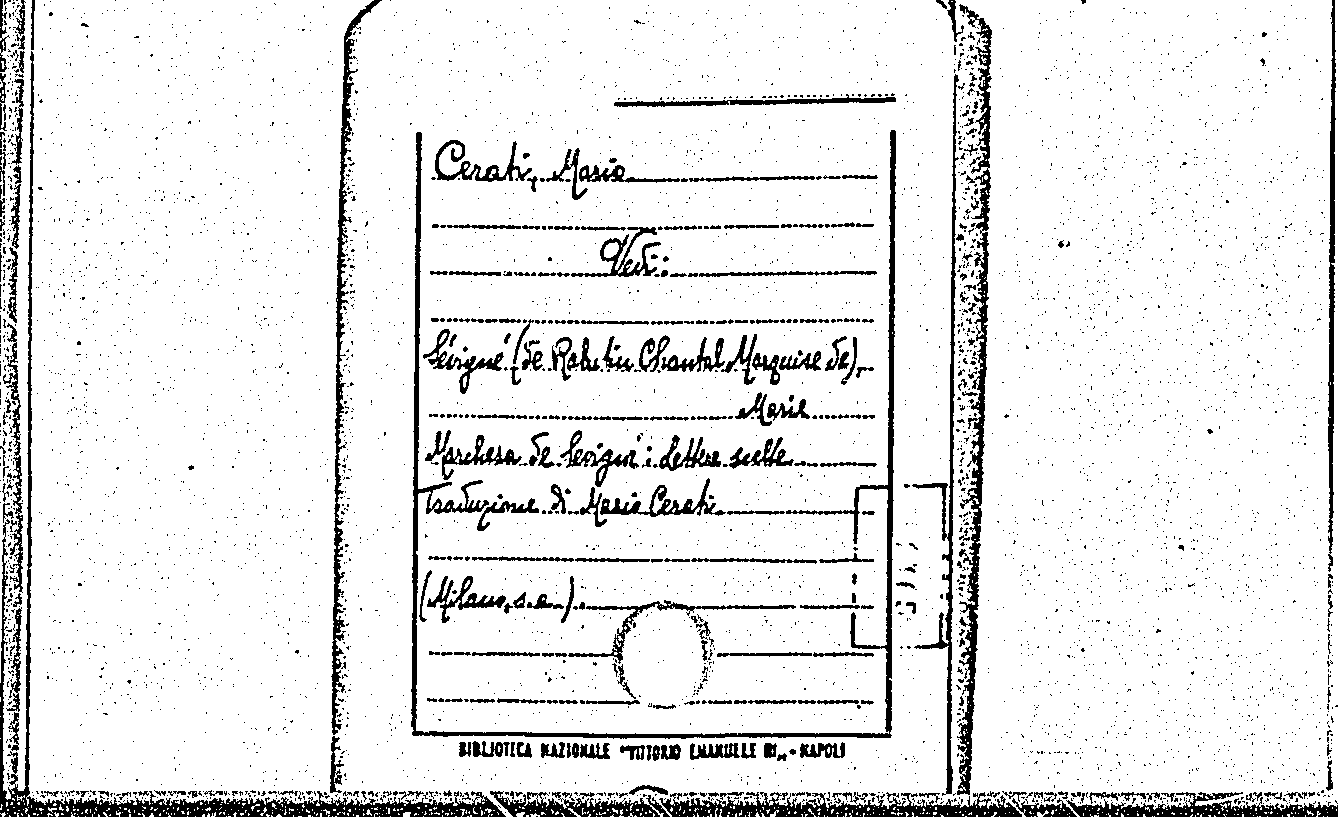 Cerati, Mario
Vedi:
Sévigné (de Rabutin Chantal Marquise de),
Marie
Marchesa de Sevigné: Lettere scelte.
Traduzione di Mario Cerati.
(Milano, s.a.).
BIBLIOTECA NAZIONALE "VITTORIO EMANUELE III„ - NAPOLI